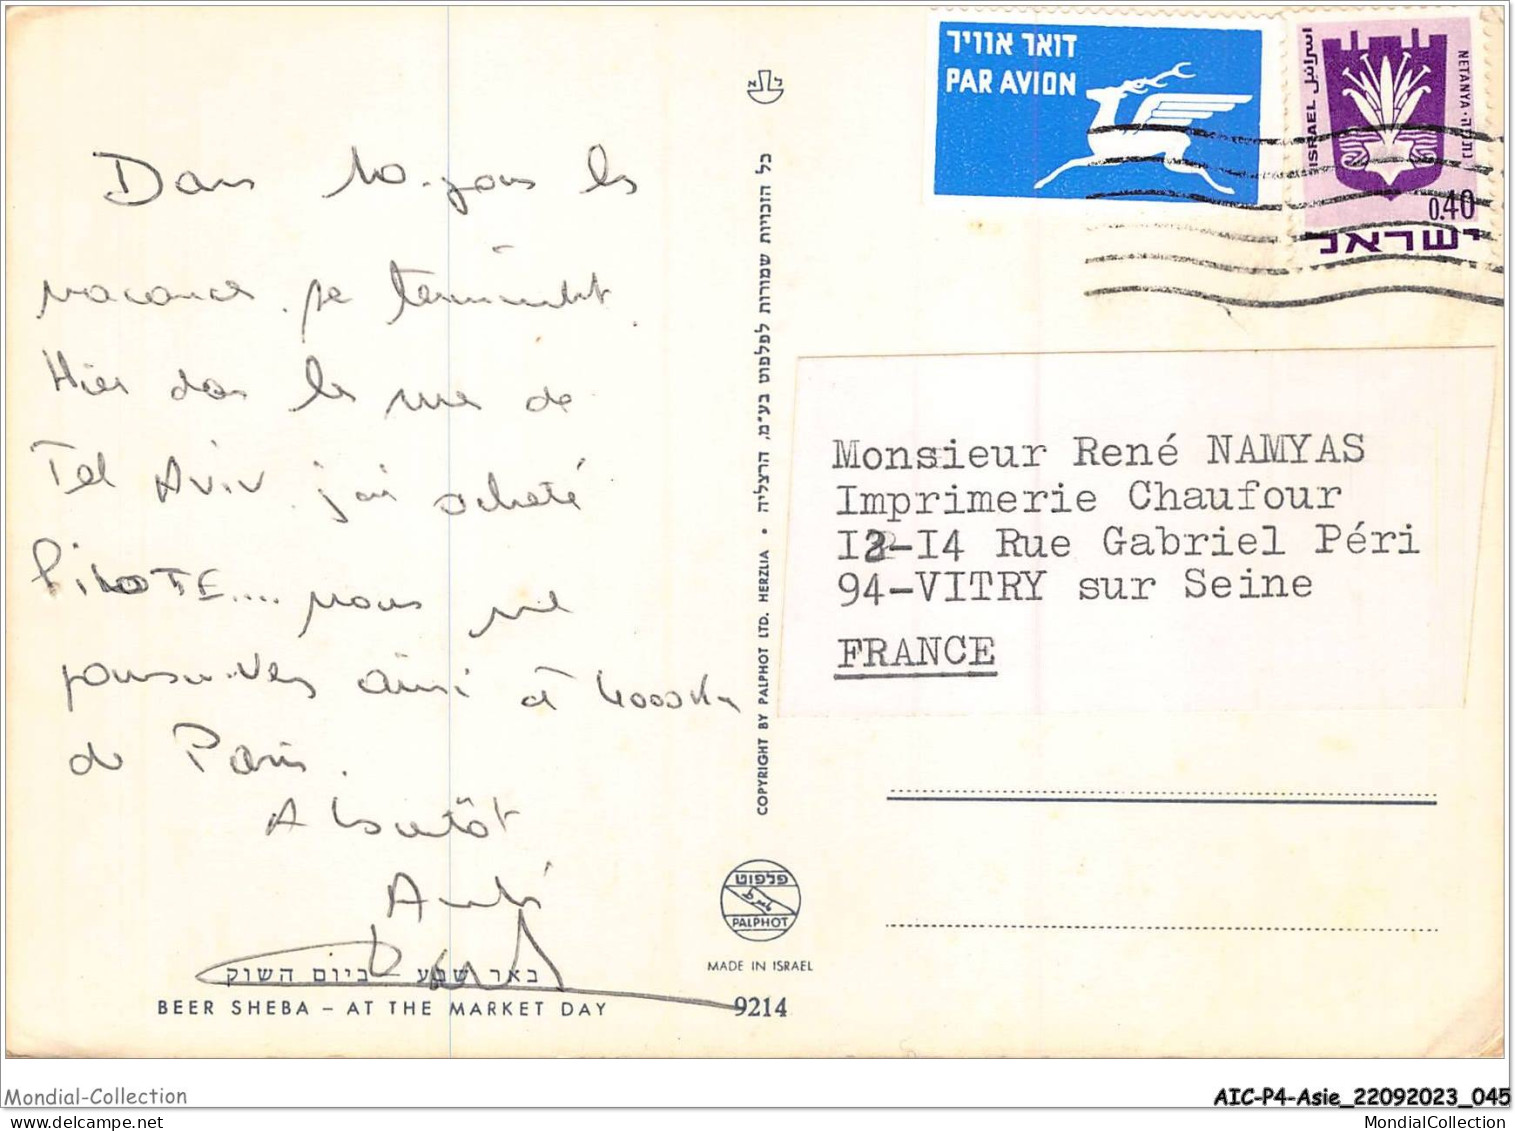 דואר אוויר
PAR AVION
اسرائيل
ISRAEL
NETANYA · נתניה
0.40
ישראל
Dans 10 jours les
vacances se terminent.
Hier dans les rues de
Tel Aviv j'ai acheté
PILOTE.... vous me
poursuivez ainsi à 4000 Km
de Paris.
A bientôt
André
באר שבע – ביום השוק
BEER SHEBA – AT THE MARKET DAY
כל הזכויות שמורות לפלפוט בע"מ, הרצליה • COPYRIGHT BY PALPHOT LTD. HERZLIA
פלפוט
PALPHOT
MADE IN ISRAEL
9214
Monsieur René NAMYAS
Imprimerie Chaufour
I2-I4 Rue Gabriel Péri
94-VITRY sur Seine
FRANCE
Mondial-Collection
AIC-P4-Asie_22092023_045
MondialCollection